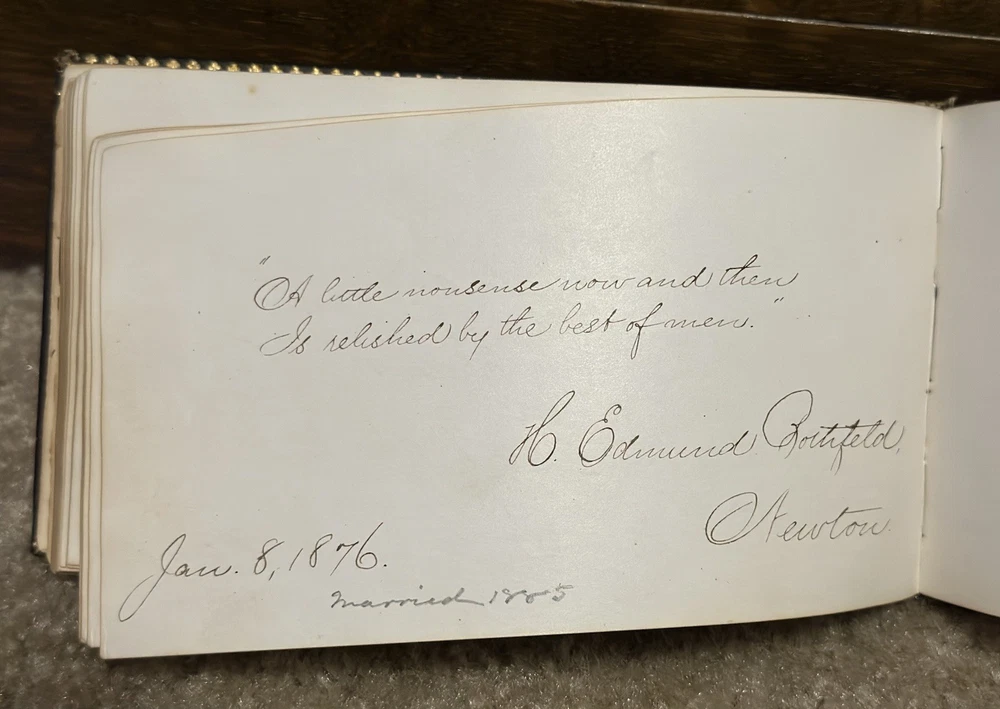 "A little nonsense now and then
Is relished by the best of men."
H. Edmund Rothfeld,
Newton.
Jan. 8, 1876.
Married 1885